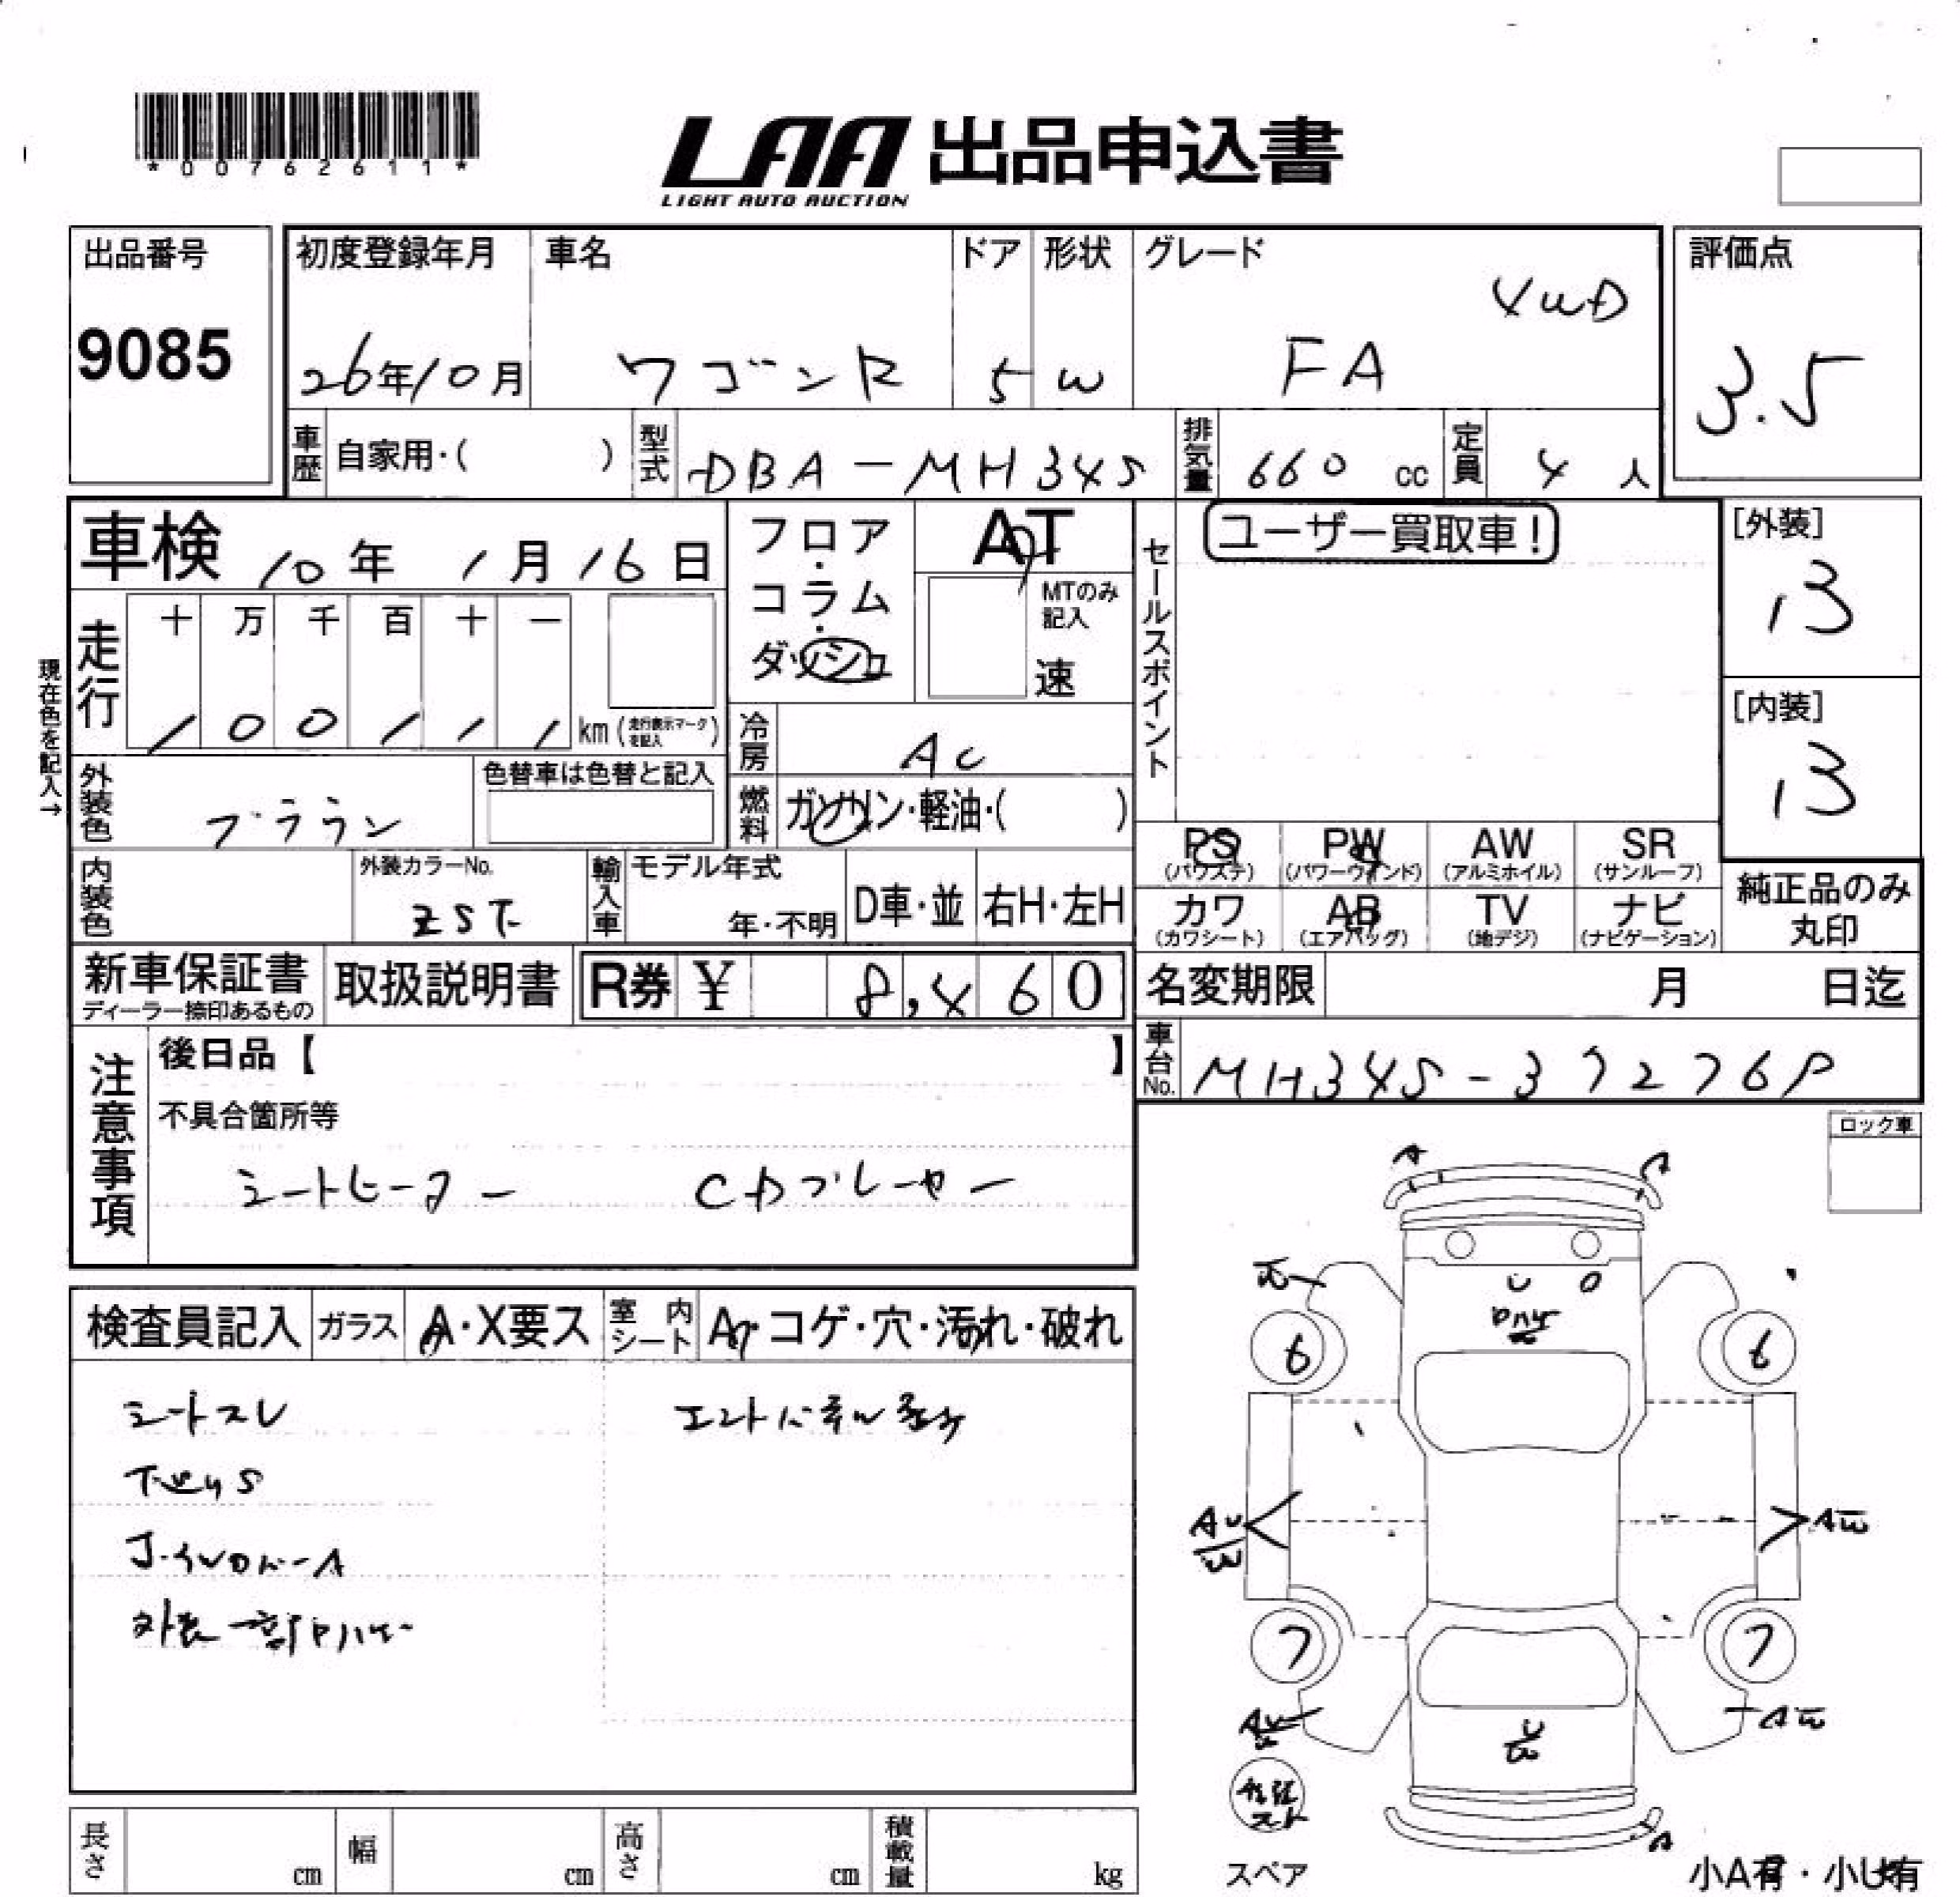 *00762611*
LAA 出品申込書
LIGHT AUTO AUCTION
出品番号
9085
初度登録年月
26年10月
車名
ワゴンR
ドア
5
形状
W
グレード
FA 4WD
評価点
3.5
車歴 自家用・( )
型式 DBA-MH34S
排気量 660 cc
定員 4 人
車検 10年 1月 16日
フロア・コラム・ダッシュ
AT
MTのみ記入
速
セールスポイント
ユーザー買取車!
[外装]
13
[内装]
13
現在色を記入→
走行
十 万 千 百 十 一
1 0 0 1 1 1 km (走行表示マークを記入)
冷房 AC
外装色 ブラウン
色替車は色替と記入
燃料 ガソリン・軽油・( )
PS (パワステ)
PW (パワーウインド)
AW (アルミホイル)
SR (サンルーフ)
カワ (カワシート)
AB (エアバッグ)
TV (地デジ)
ナビ (ナビゲーション)
純正品のみ丸印
内装色
外装カラーNo.
ZST
輸入車
モデル年式
年・不明
D車・並
右H・左H
新車保証書
ディーラー捺印あるもの
取扱説明書
R券 ¥ 8,460
名変期限 月 日迄
車台No. MH34S-37276P
注意事項
後日品【 】
不具合箇所等
シートヒーター CDプレーヤー
ロック車
検査員記入
ガラス A・X要ス
室内シート A・コゲ・穴・汚れ・破れ
シートスレ
下廻りS
外装一部
A
A
U
6
6
AU
7
7
A
スペア
小A有・小U有
長さ cm
幅 cm
高さ cm
積載量 kg